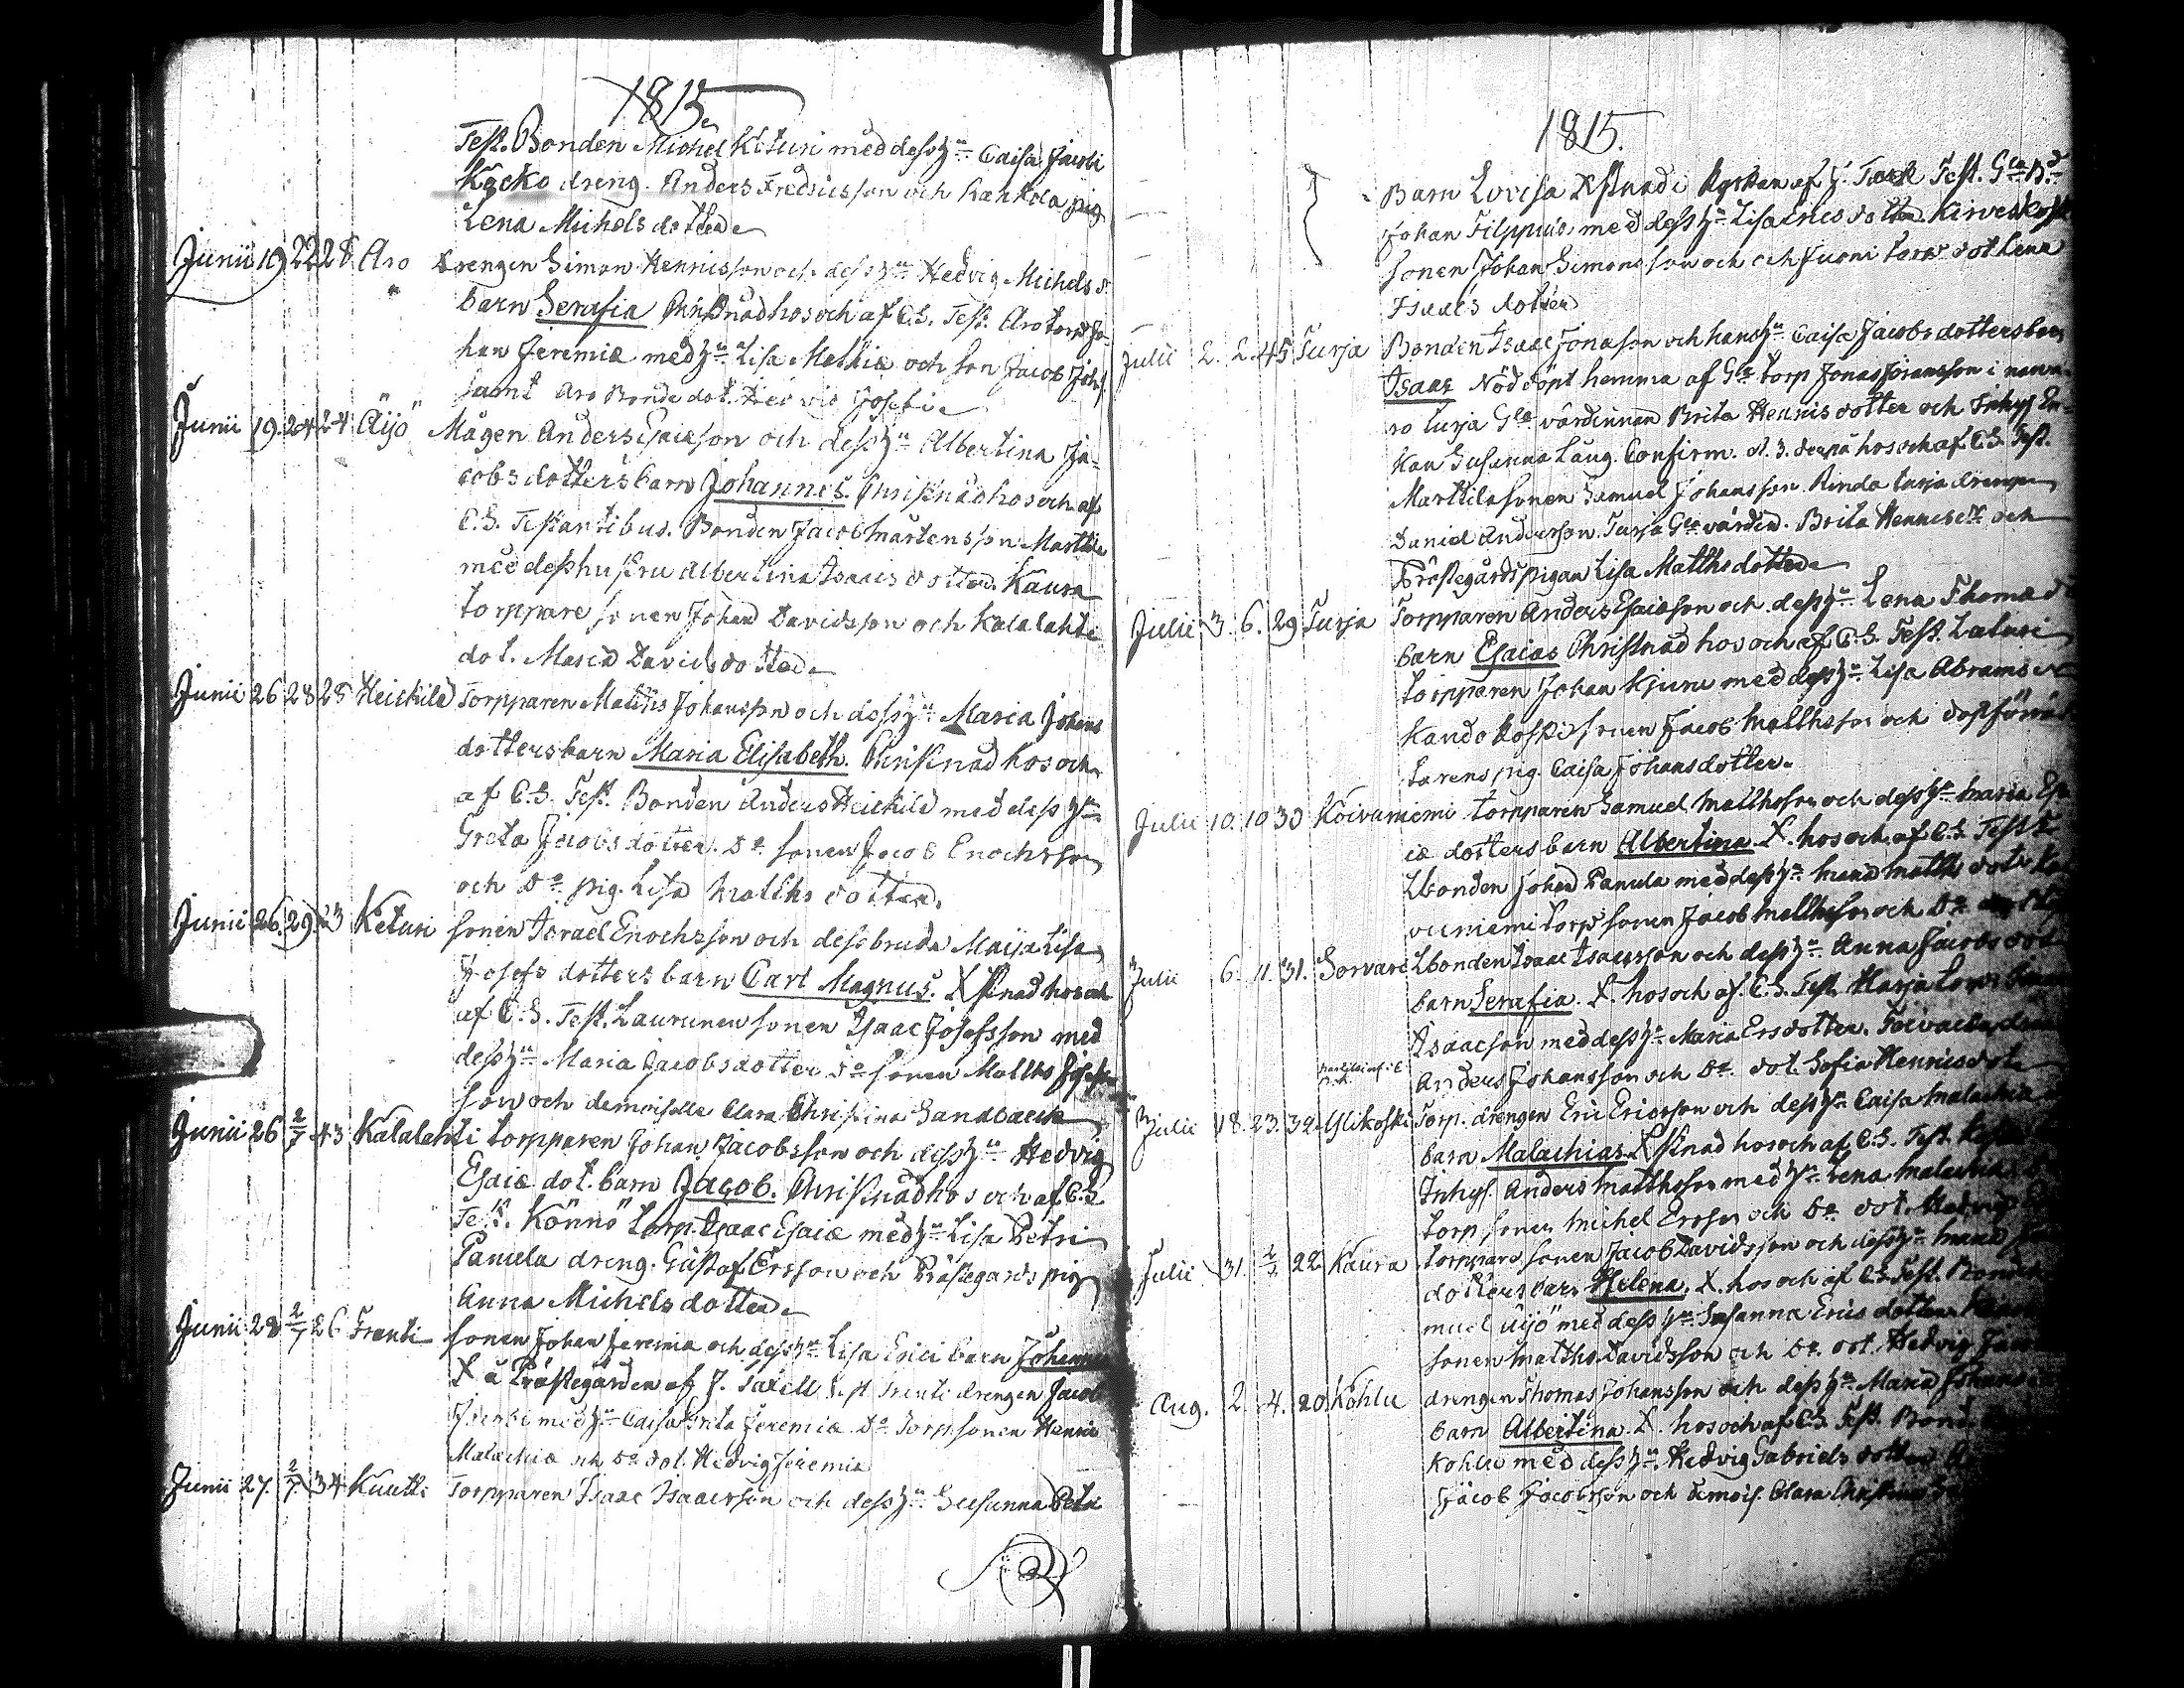 1815.
Test. Bonden Michel Keturi med dess hu Caisa Jacobi
Kåcko dreng. Anders Fredricsson och Rankola pig.
Lena Michelsdotter
Junii 19 22 28 Aro Drengen Simon Hennisson och dess hu Hedvig Michels d.
barn Serafia Christnad hos och af C.S. Test. Aro torp. Jo-
han Jeremiæ med hu Lisa Mathiæ och son Jacob Joh.
samt Aro Bonde dot. Hedvig Josefi
Junii 19. 24 24 Äijö Mågen Anders Esaiesson och dess hu Albertina Ja-
cobsdotters barn Johannes. Christnad hos och af
C.S. Testantibus. Bonden Jacob Mårtensson Marttila
med dess hustru Albertina Isaacsdotter. Kaura
torppare sonen Johan Davidsson och Kalalahti
dot. Maria Davidsdotter
Junii 26 28 25 Heickilä Torpparen Matths Johansson och dess hu Maria Johans
dotters barn Maria Elisabeth. Christnad hos och
af C.S. Test. Bonden Anders Heickilä med dess hu
Greta Jacobsdotter. Do sonen Jacob Enochsson
och Do pig. Lisa Matthsdotter.
Junii 26. 29. 23 Keturi sonen Israel Enochsson och dess bruda Maija Lisa
Josefs dotters barn Carl Magnus. Xstnad hos och
af C.S. Test. Laurunen sonen Isaac Josefsson med
dess hu Maria Jacobsdotter Do sonen Matths Josefs-
son och demoiselle Clara Christina Sandbacka
Junii 26 2/7 43 Kalalahti torpparen Johan Jacobsson och dess hu Hedvig
Esaiæ dot. barn Jacob. Christnad hos och af C.S.
Test. Könnö torp. Isaac Esaiæ med hu Lisa Petri
Panula dreng. Gustaf Ersson och Prästegårds pig
Anna Michelsdotter
Junii 28 2/7 26 Frenti sonen Johan Jeremiæ och dess hu Lisa Erici barn Johannes
X å Prästegården af J. Taxell Test Frenti drengen Jacob
med hu Caisa Greta Jeremiæ Do Torp. sonen Henric
Malachiæ och Do dot. Hedvig Jeremiæ
Junii 27. 2/7 34 Kuutti Torpparen Isaac Isaacsson och dess hu Susanna Petri
1815.
Barn Lovisa Xstnad i Kyrkan af J. Test. Gla B.d
Johan Filppula med dess hu Lisa Ericsdotter. Kirveskoski
sonen Johan Simonsson och Juoni torp. dot Lena
Isaacs dotter
Julii 2. 2. 45 Turja Bonden Isaac Jonasson och hans hu Caisa Jacobsdotters barn
Isaac Nöddöpt hemma af Gla torp Jonas Joransson i narva-
ro Turja Gla värdinnan Brita Hennisdotter och Inhys En-
kan Susanna Laug. Confirm. d. 3. derpå hos och af C.S. Test.
Marttila sonen Samuel Johansson Rinda turja drengen
Daniel Andersson. Turja Gla värdin. Brita Hennisdr och
Prästegårdspigan Lisa Matthsdotter
Julii 3. 6. 29 Turja Torpparen Anders Esaiæson och dess hu Lena Thomæ d
barn Esaias Christnad hos och af C.S. Test. Laturi
torpparen Johan Kjuru med dess hu Lisa Abrams d
Kando koski sonen Jacob Matthsson och dess förvä-
tarens pig. Caisa Johansdotter.
Julii 10. 10 30 Koivuniemi torpparen Samuel Matthsson och dess hu Maria Esa
iæ dotters barn Albertina X. hos och af C.S. Test.
Bonden Johan Panula med dess hu Maria Matths dotr Koi
vuniemi torp sonen Jacob Matthsson och Do
Julii 6. 11. 31. Sorvari Bonden Isaac Isaacsson och dess hu Anna Jacobs dot
barn Serafia. X. hos och af C.S. Test. Harja torp.
Isaacson med dess hu Maria Ersdotter. Toivacka dreng
Anders Johansson och Do dot. Sofia Henricsdotr
Julii 18. 23. 32. Ylikoski Torp. drengen Eric Ericsson och dess hu Caisa Malachiæ
barn Malachias Xstnad hos och af C.S. Test.
Inhys. Anders Matthsson med hu Lena Malachiæ
torp. sonen Michel Ersson och Do dot. Hedvig
Julii 31. 2/8 22 Kaura torppare sonen Jacob Davidsson och dess hu Maria
dotters barn Helena. X. hos och af C.S. Test. Bonden
muel Äijö med dess hu Susanna Erics dotter
sonen Matths Davidsson och Do dot. Hedvig
Aug. 2. 4. 20 Kohlu drengen Thomas Johansson och dess hu Maria Johans
barn Albertina. X. hos och af C.S. Test. Bond.
Kohlu med dess hu Hedvig Gabrielsdotter
Jacob Jacobsson och Demois. Clara Christina